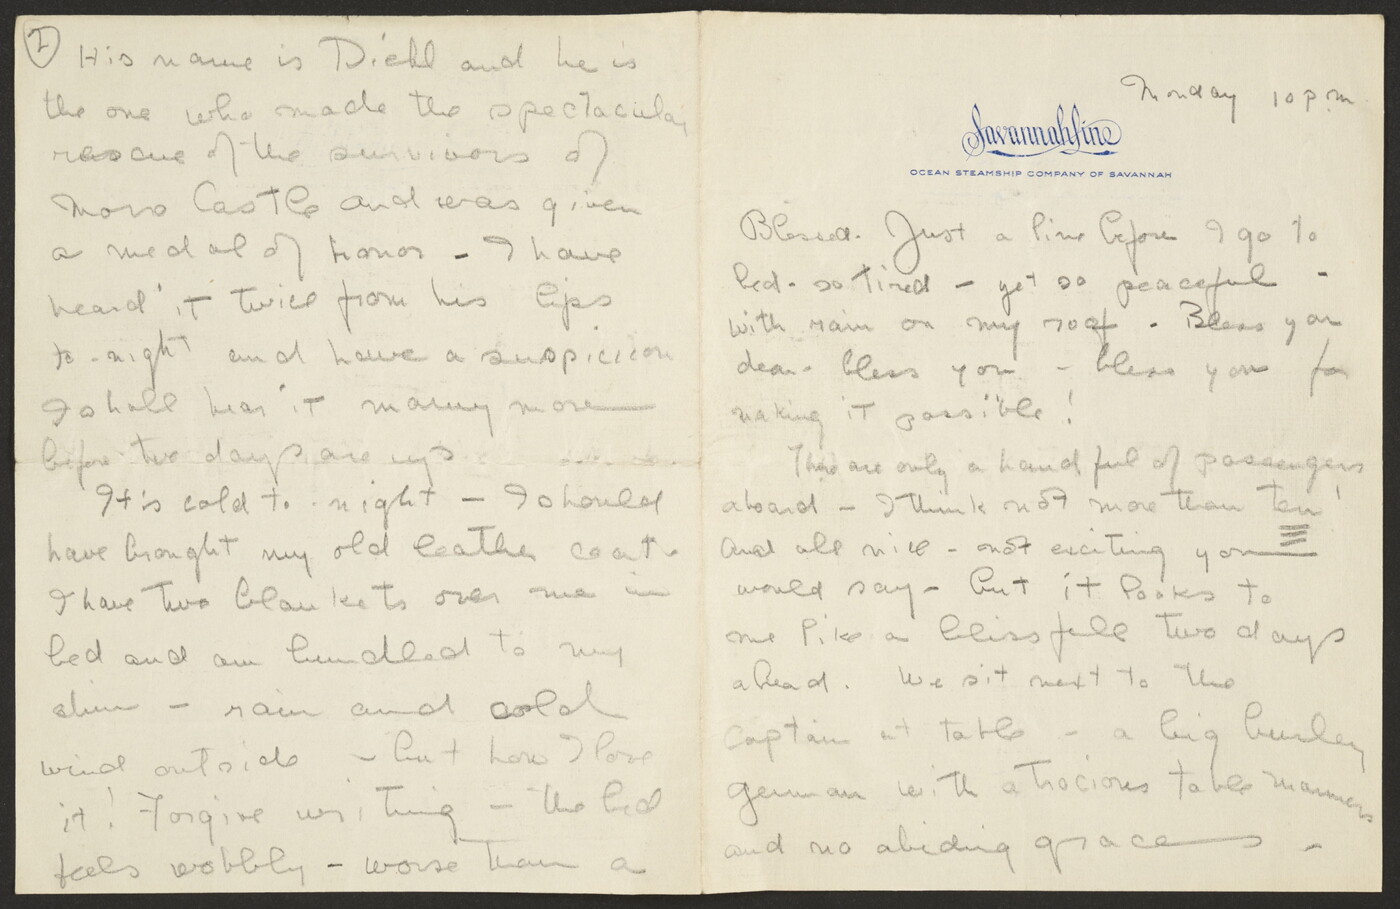 Monday 10 p.m.
Savannah Line
OCEAN STEAMSHIP COMPANY OF SAVANNAH
Blessed. Just a line before I go to
bed. so tired - yet so peaceful -
with rain on my roof. Bless you
dear - bless you - bless you for
making it possible!
There are only a handful of passengers
aboard - I think not more than ten!
And all nice - not exciting you
would say - but it looks to
me like a blissfull two days
ahead. We sit next to the
captain at table - a big burley
german with atrocious table manners
and no abiding graces -
I
His name is Diehl and he is
the one who made the spectacular
rescue of the survivors of
Moro Castle and was given
a medal of honor - I have
heard it twice from his lips
to-night and have a suspicion
I shall hear it many more
before two days are up.
It is cold to-night - I should
have brought my old leather coat.
I have two blankets over me in
bed and am bundled to my
chin - rain and cold
wind outside - but how I love
it! Forgive writing - the bed
feels wobbly - worse than a